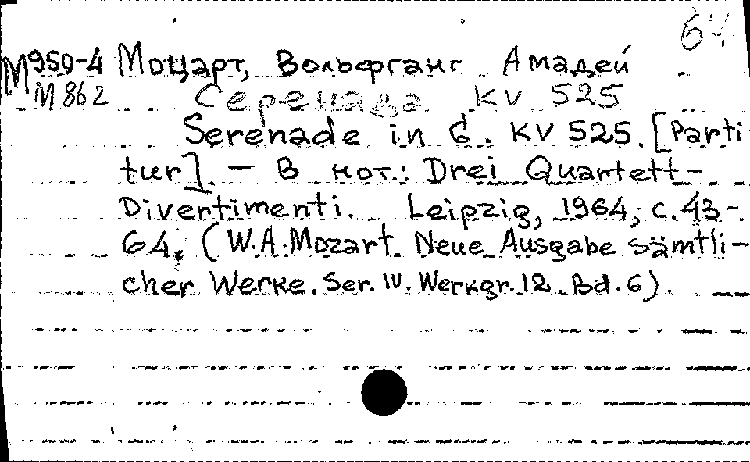 64
М959-4 Моцарт, Вольфганг Амадей
М862 Серенада KV 525
Serenade in G. KV 525. [Parti
tur] – В нот.: Drei Quartett-
Divertimenti. Leipzig, 1964, с. 43-
64. (W.A. Mozart. Neue Ausgabe sämtli-
cher Werke. Ser. IV. Werkgr. 12. Bd. 6).